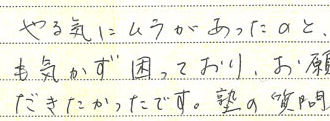 やる気にムラがあったのと、
も気がず困っており、お願
だきたかったです。塾の質問